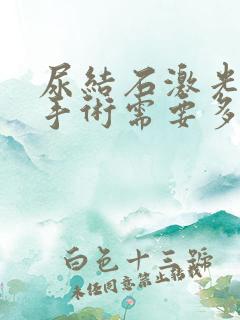 尿結石激光
手術需要多
白色十三號
未经同意禁止转载